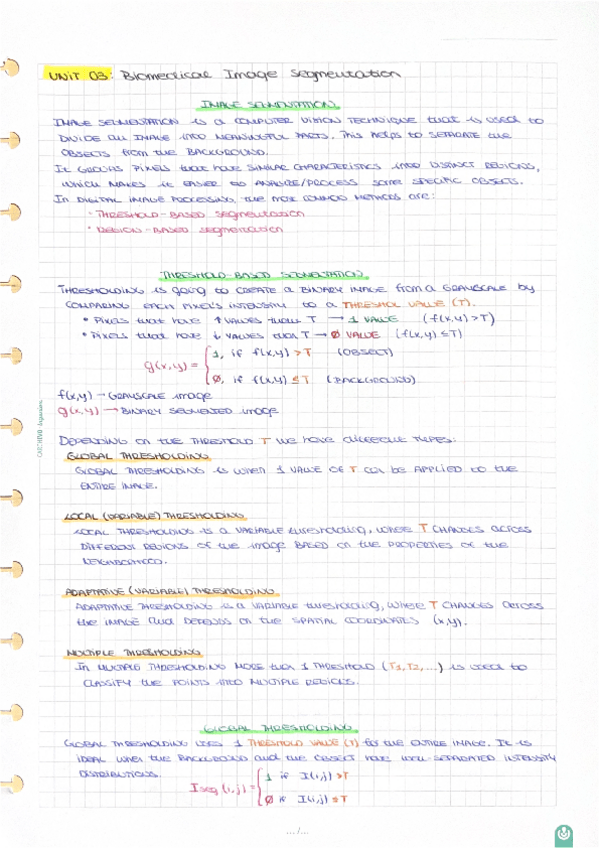 UNIT 03: Biomedical Image Segmentation
IMAGE SEGMENTATION
IMAGE SEGMENTATION is a COMPUTER VISION TECHNIQUE that is used to
DIVIDE an IMAGE into MEANINGFUL PARTS. This helps to SEPARATE the
OBJECTS from the BACKGROUND.
It GROUPS PIXELS that HAVE SIMILAR CHARACTERISTICS into DISTINCT REGIONS,
WHICH MAKES it EASIER to ANALYSE/PROCESS some SPECIFIC OBJECTS.
In DIGITAL IMAGE PROCESSING, the MOST COMMON METHODS are:
· THRESHOLD-BASED segmentation
· REGION-BASED segmentation
THRESHOLD-BASED SEGMENTATION
THRESHOLDING is going to CREATE a BINARY IMAGE from a GRAYSCALE by
COMPARING EACH PIXEL'S INTENSITY to a THRESHOL VALUE (T).
• PIXELS that HAVE ↑ VALUES than T → 1 VALUE (f(x,y) > T)
• PIXELS that HAVE ↓ VALUES than T → Ø VALUE (f(x,y) ≤ T)
g(x,y) = { 1, if f(x,y) > T (OBJECT)
Ø, if f(x,y) ≤ T (BACKGROUND)
f(x,y) → GRAYSCALE image
g(x,y) → BINARY SEGMENTED image
DEPENDING on the THRESHOLD T WE HAVE different TYPES:
GLOBAL THRESHOLDING
GLOBAL THRESHOLDING is WHEN 1 VALUE OF T can be APPLIED to the
ENTIRE IMAGE.
LOCAL (VARIABLE) THRESHOLDING
LOCAL THRESHOLDING is a VARIABLE thresholding, WHERE T CHANGES ACROSS
DIFFERENT REGIONS OF the image BASED on the PROPERTIES OF the
NEIGHBORHOOD.
ADAPTATIVE (VARIABLE) THRESHOLDING
ADAPTATIVE THRESHOLDING is a VARIABLE thresholding, WHERE T CHANGES ACROSS
the IMAGE and DEPENDS on the SPATIAL COORDINATES (x,y).
MULTIPLE THRESHOLDING
In MULTIPLE THRESHOLDING MORE than 1 THRESHOLD (T1,T2,...) is used to
CLASSIFY the POINTS into MULTIPLE REGIONS.
GLOBAL THRESHOLDING
GLOBAL THRESHOLDING USES 1 THRESHOLD VALUE (T) for the ENTIRE IMAGE. It is
IDEAL when the BACKGROUND and the OBJECT HAVE WELL-SEPARATED INTENSITY
DISTRIBUTIONS.
Iseg (i,j) = { 1 if I(i,j) > T
Ø if I(i,j) ≤ T
.../...